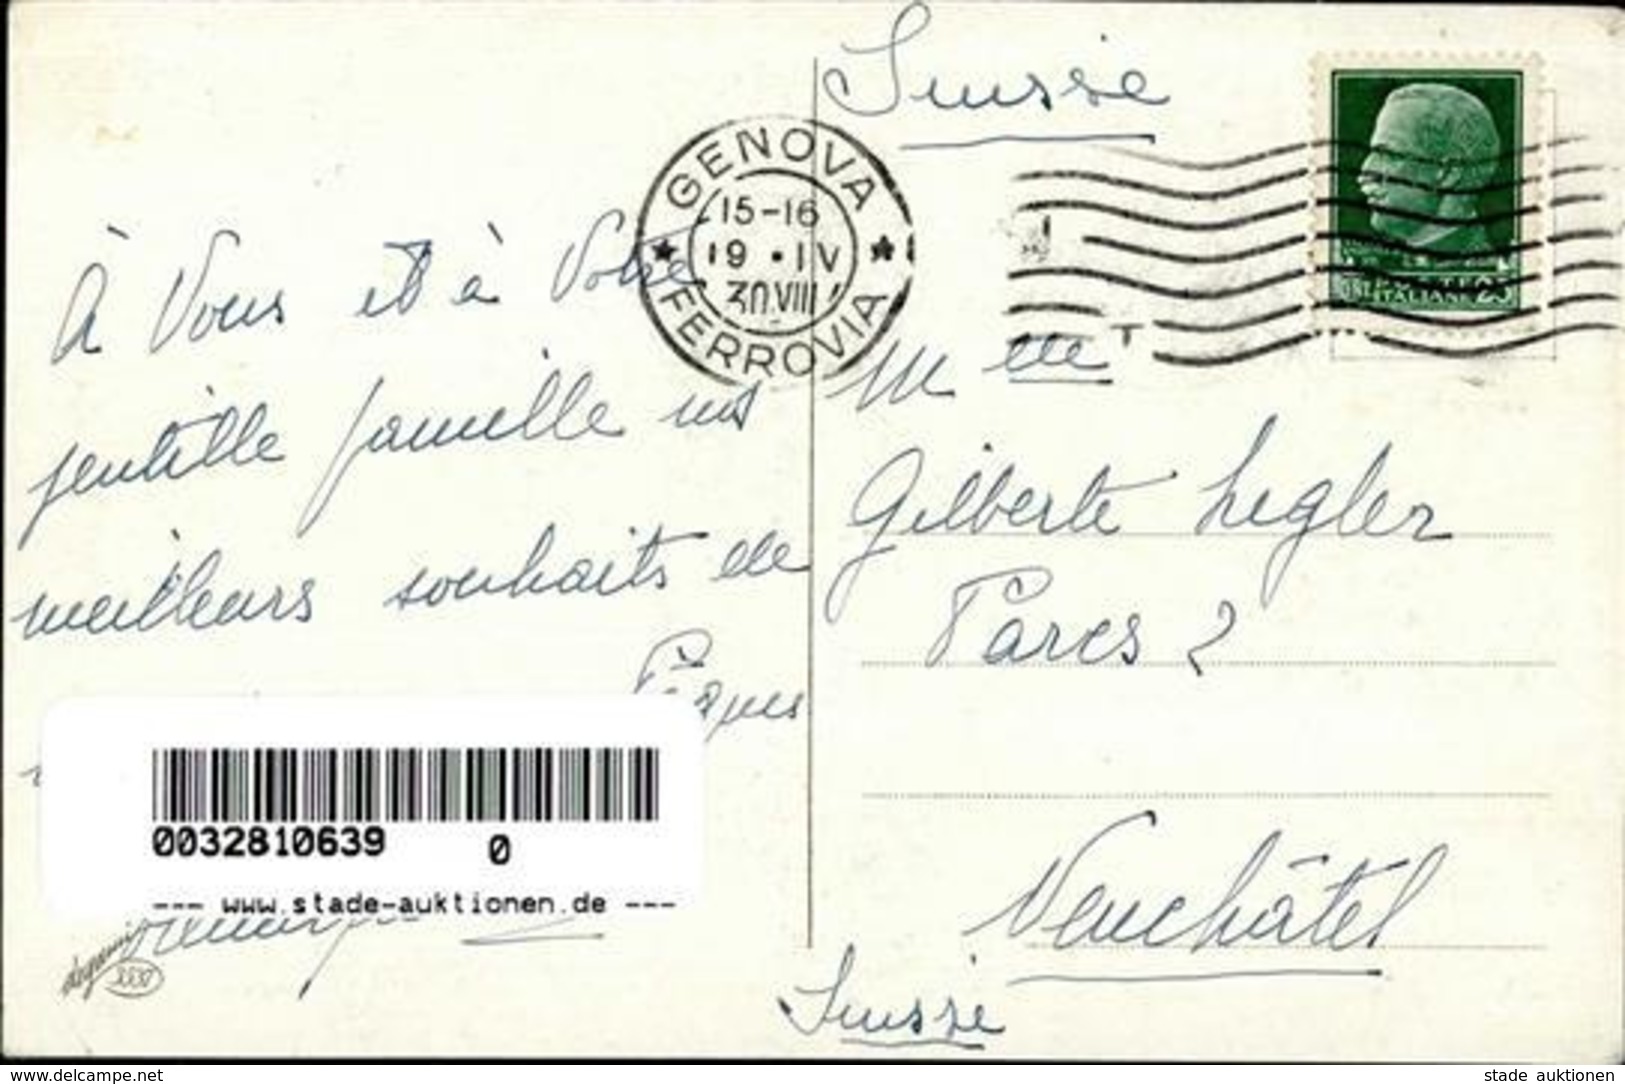 Suisse
GENOVA
15-16
19 • IV
30.VIII
FERROVIA
POSTE
ITALIANE 25
À Vous et à Votre
gentille famille nos
meilleurs souhaits de
Pâques
Melle
Gilberte Legler
Parcs 2
Neuchâtel
Suisse
0032810639 0
--- www.stade-auktionen.de ---
www.delcampe.net
stade auktionen